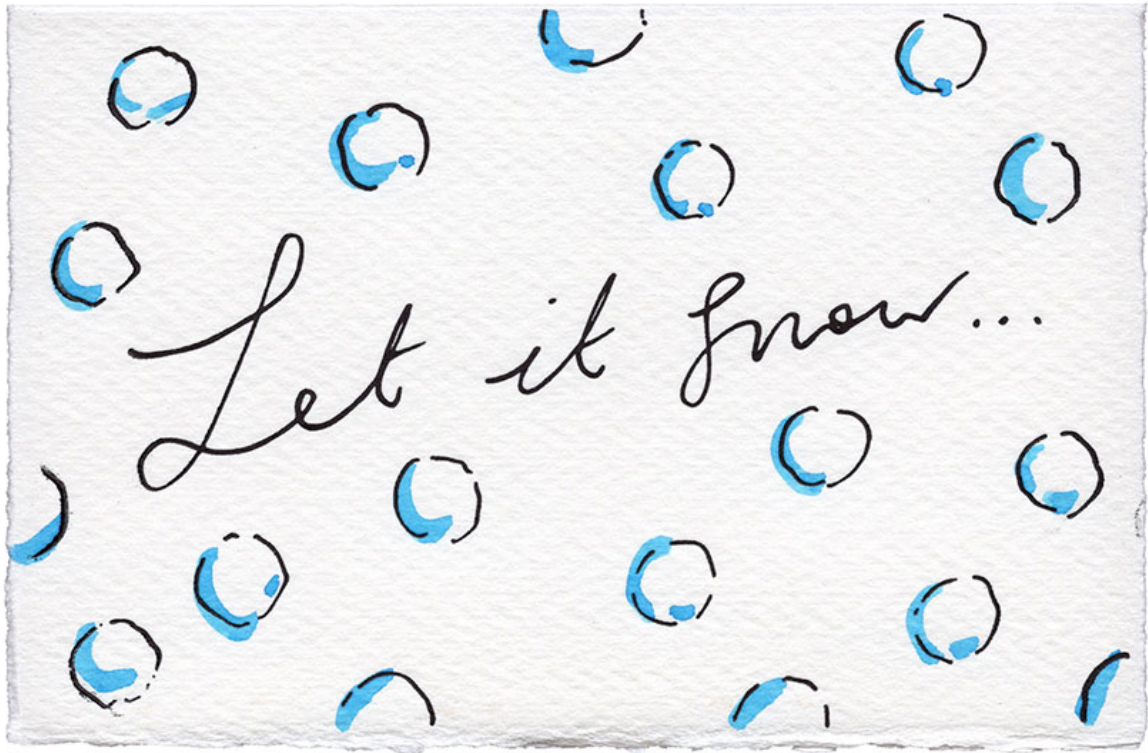 Let it snow...